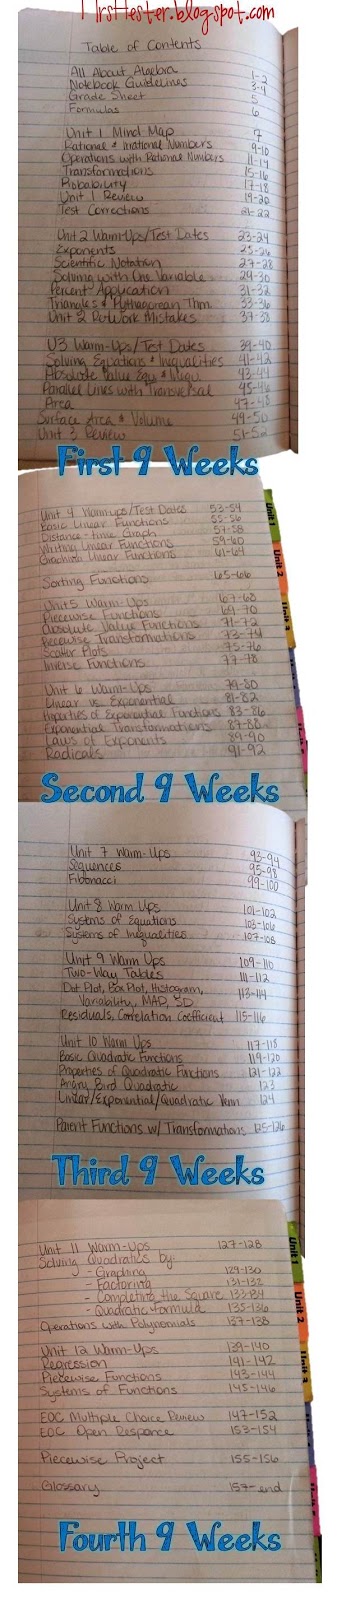 MrsTTester.blogspot.com
Table of Contents
All About Algebra 1-2
Notebook Guidelines 3-4
Grade Sheet 5
Formulas 6
Unit 1 Mind Map 7
Rational & Irrational Numbers 9-10
Operations with Rational Numbers 11-14
Transformations 15-16
Probability 17-18
Unit 1 Review 19-20
Test Corrections 21-22
Unit 2 Warm-Ups/Test Dates 23-24
Exponents 25-26
Scientific Notation 27-28
Solving with One Variable 29-30
Percent Application 31-32
Triangles & Pythagorean Thm 33-36
Unit 2 Mistakes 37-38
U3 Warm-Ups/Test Dates 39-40
Solving Equations & Inequalities 41-42
Absolute Value Equ & Inequ 43-44
Parallel Lines with Transversal 45-46
Area 47-48
Surface Area & Volume 49-50
Unit 3 Review 51-52
First 9 Weeks
Unit 4 Warm-ups/Test Dates 53-54
Basic Linear Functions 55-56
Distance-time Graph 57-58
Writing Linear Functions 59-60
Graphing Linear Functions 61-64
Sorting Functions 65-66
Unit 5 Warm-Ups 67-68
Piecewise Functions 69-70
Absolute Value Functions 71-72
Piecewise Transformations 73-74
Scatter Plots 75-76
Inverse Functions 77-78
Unit 6 Warm-Ups 79-80
Linear vs. Exponential 81-82
Properties of Exponential Functions 83-86
Exponential Transformations 87-88
Laws of Exponents 89-90
Radicals 91-92
Unit 1
Unit 2
Unit 3
Second 9 Weeks
Unit 7 Warm-Ups 93-94
Sequences 95-98
Fibonacci 99-100
Unit 8 Warm Ups 101-102
Systems of Equations 103-106
Systems of Inequalities 107-108
Unit 9 Warm Ups 109-110
Two-Way Tables 111-112
Dot Plot, Box Plot, Histogram,
Variability, MAD, SD 113-114
Residuals, Correlation Coefficient 115-116
Unit 10 Warm Ups 117-118
Basic Quadratic Functions 119-120
Properties of Quadratic Functions 121-122
Angry Bird Quadratic 123
Linear/Exponential/Quadratic Venn 124
Parent Functions w/ Transformations 125-126
Third 9 Weeks
Unit 11 Warm-Ups 127-128
Solving Quadratics by:
- Graphing 129-130
- Factoring 131-132
- Completing the Square 133-134
- Quadratic formula 135-136
Operations with Polynomials 137-138
Unit 12 Warm-Ups 139-140
Regression 141-142
Piecewise Functions 143-144
Systems of Functions 145-146
EOC Multiple Choice Review 147-152
EOC Open Responce 153-154
Piecewise Project 155-156
Glossary 157-end
Unit 1
Unit 2
Unit 3
Fourth 9 Weeks